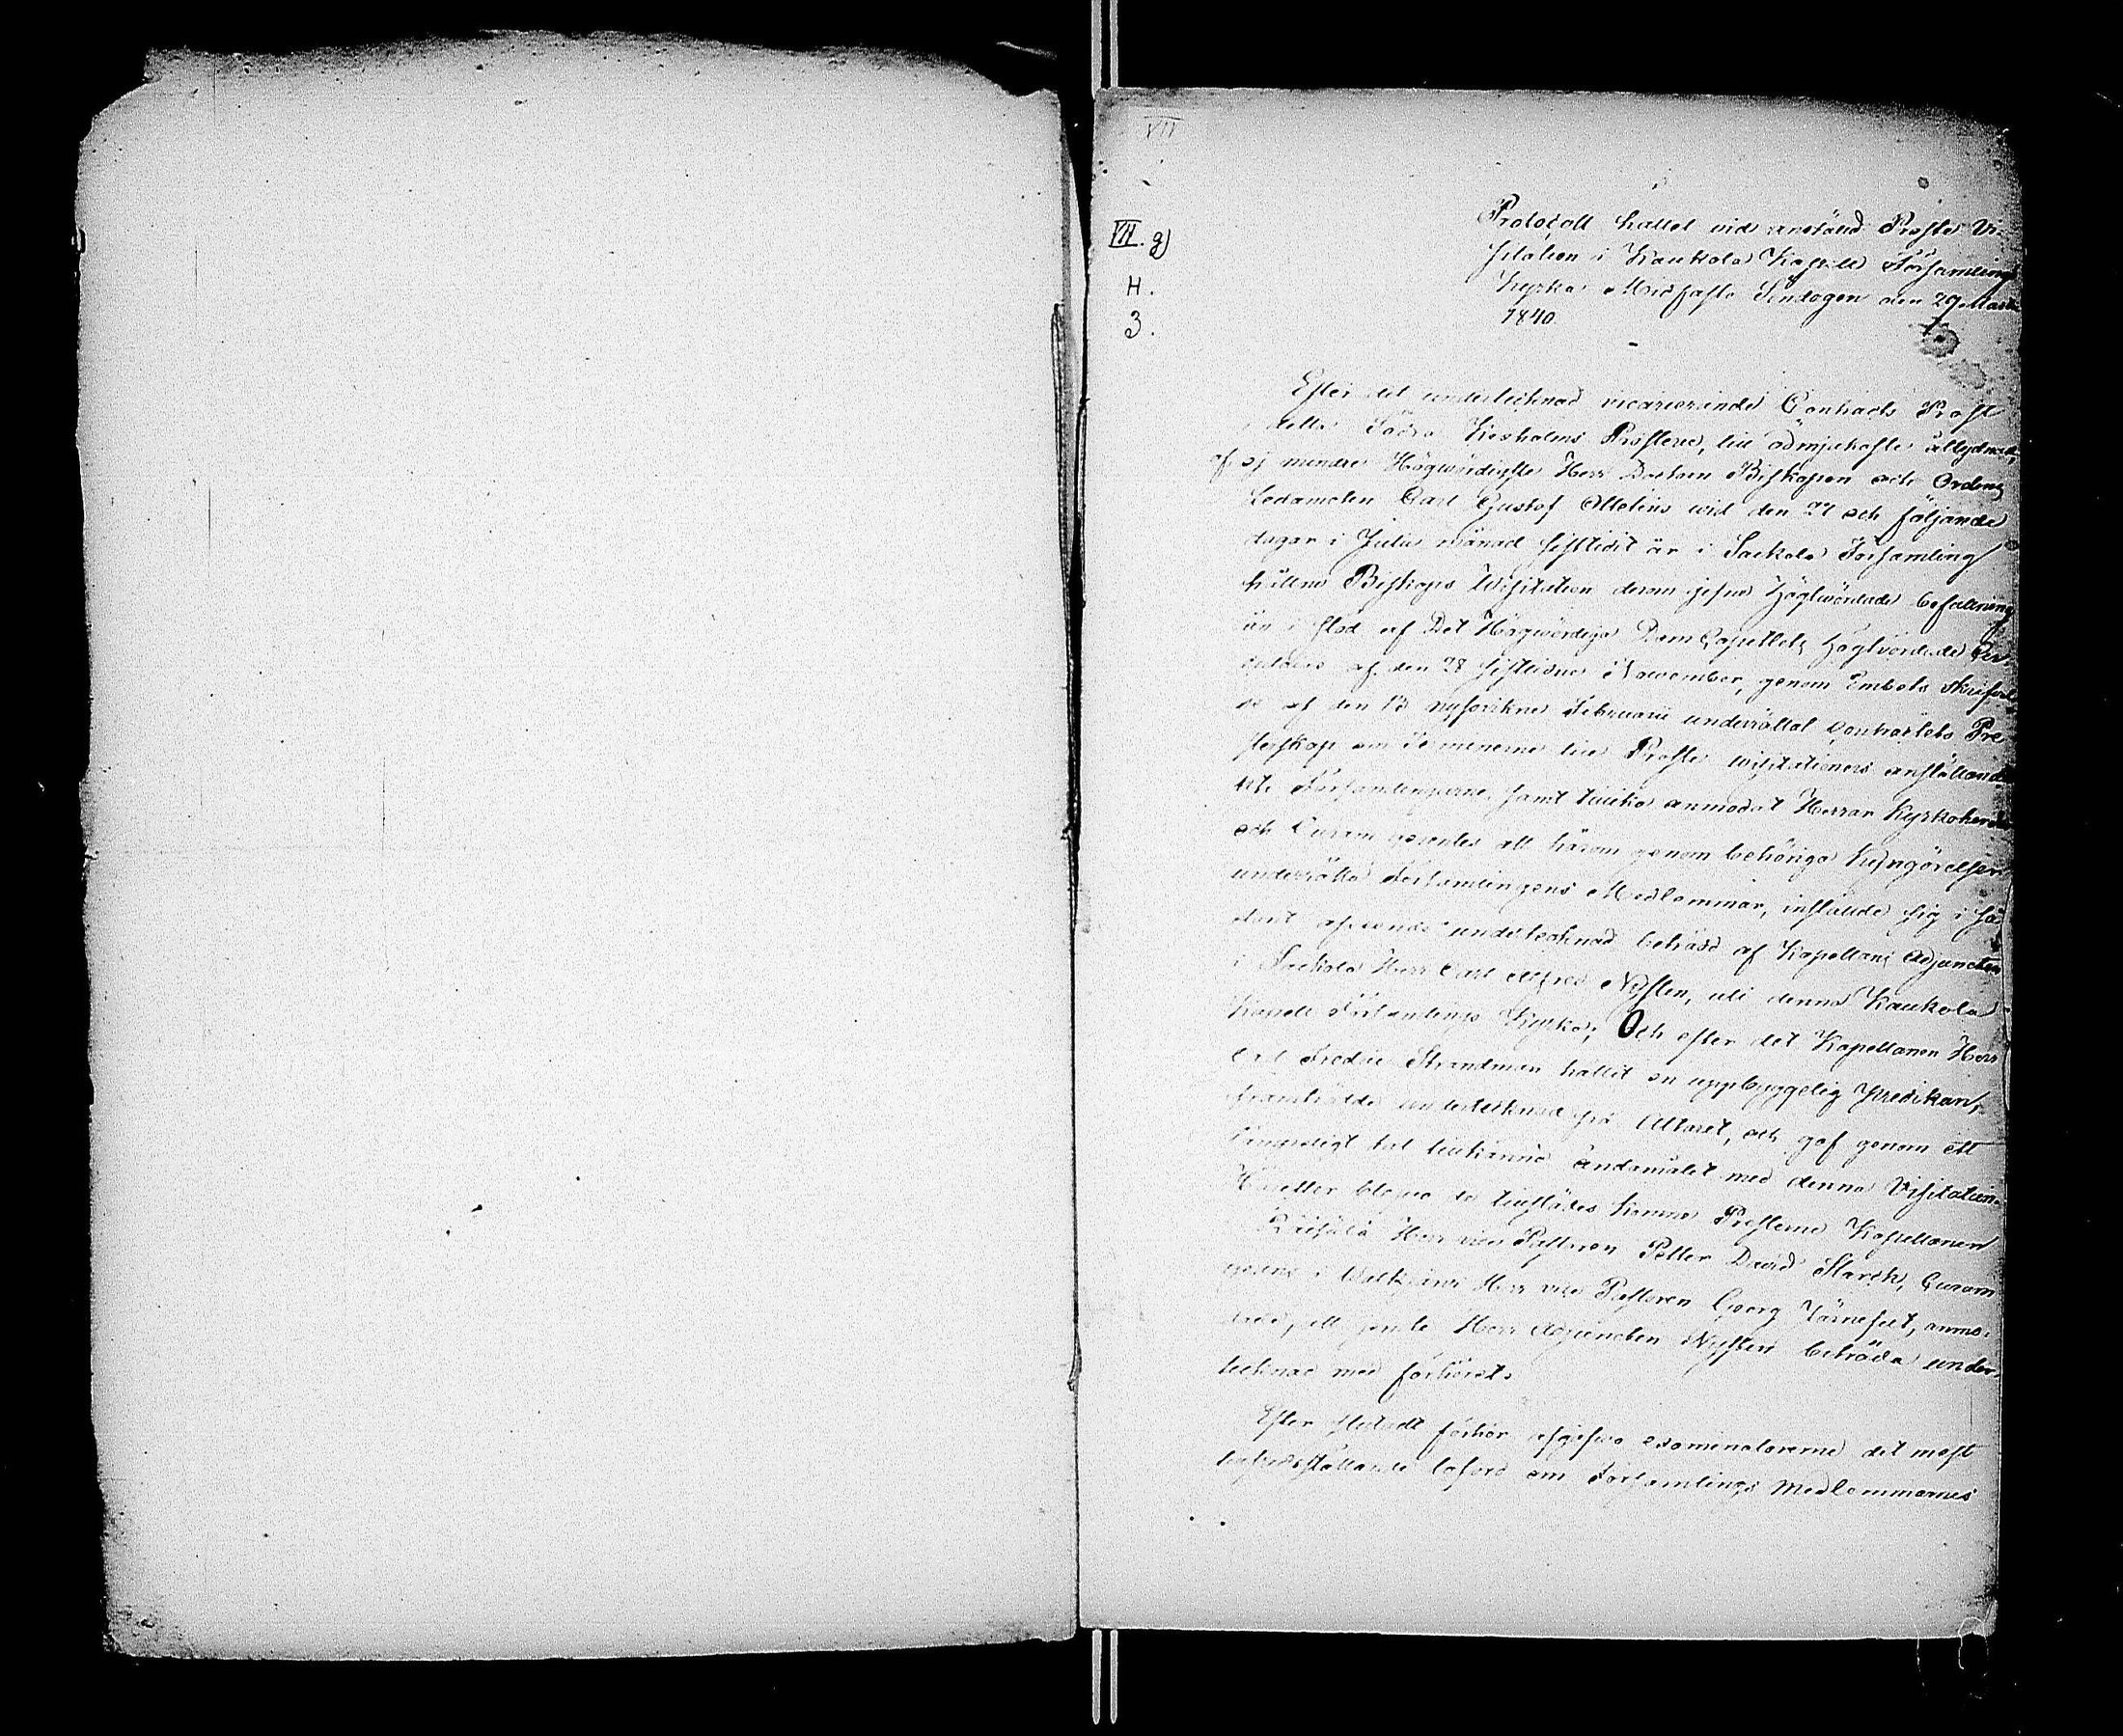 VII
VII. g)
H.
3.
Protocoll hållet vid anstäld Proste Vi-
sitation i Kaukola Kapells Församlings
Kyrka Midfasto Söndagen den 29 Martii
1840.
Efter det undertecknad vicarierande Contracts Prost
i detta Södra Kexholms Prosteri, till ödmjukaste åtlydnad,
af ej mindre Högwördigste Herr Doctorn Biskopen och Ordens
Ledamoten Carl Gustof Ottelins wid den 27 och följande
dagar i Julii månad sistledit år i Sackola Församling
hållne Biskops Visitation derom gifne Höglwördade befallning
än i stöd af Det Högwördiga Dom Capitlets Höglvördade Cir-
culaire af den 28 sistledne November, genom Embets skrifvel-
se af den 13 nysvikne Februarii underrättat Contractets Pre-
sterskap om Terminerne till Proste visitationers anställande
uti Församlingarne, samt tillika anmodat Herrar Kyrkoherdar
och Curam gerentes att härom genom behöriga Kungörelser
underrätta Församlingens Medlemmar, instälde sig i så-
dant afseende undertecknad biträdd af Kapellans Adjuncten
i Sackola Herr Carl Alfred Nysten, uti denna Kaukola
Kapells Församlings Kyrka; Och efter det Kapellanen Herr
Carl Fredric Strandman hållit en uppbyggelig Predikan,
framträdde undertecknad för Altaret, och gaf genom ett
lämpeligt tal tillkänna ändamålet med denna Visitation.
Härefter blefvo de tillstädes komne Presterne Kapellanen
i Räisälä Herr vice Pastoren Petter David Starck, Curam
gerens i Walkjärvi Herr vice Pastoren Georg Järnefelt, anmo-
dade, att jemte Herr Adjuncten Nysten biträda under-
tecknad med förhöret.
Efter slutadt förhör afgåfvo examinatorerne det mest
tillfredsställande loford om Församlings Medlemmarnes